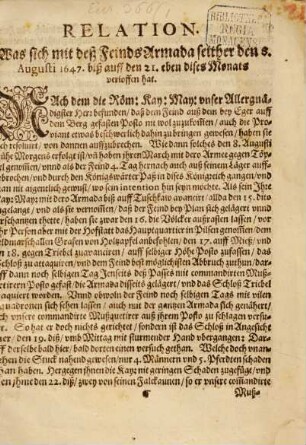 RELATION.
Was sich mit deß Feinds Armada seither den 8.
Augusti 1647. biß auff den 21. eben dises Monats
verloffen hat.
NAch dem die Röm: Kay: May: vnser Allergnä-
digster Herr befunden / daß den Feind auß den bey Eger auff
dem Berg gefasten Posto mit wol zuzukommen / auch die Pro
viant etwas beschwerlich dahin zu bringen gewesen / haben sie
sich resoluiert / von dannen auffzubrechen. Wie dann solches den 8. Augusti
frühe Morgens erfolgt ist / vñ haben ihren March mit der Armee gegen Töp-
pel genom̃en / vnnd als der Feind 4. Tag hernach auch auß seinem Läger auff-
gebrochen / vnd durch den Königswarter Paß in dises Königreich gangen / vnd
man nit eigentlich gewust / wo sein intention hin seyn möchte. Als sein Ihre
Kay: May: mit dero Armada biß auff Tuschkaw avancirt / allda den 15. diso
angelangt / vnd als sie vernommen / daß der Feind bey Plan sich gelägert vnnd
verschanzen thete / haben sie zwar den 16. die Völcker außrasten lassen / vor
Ihr Person aber mit der Hofstatt das Hauptquartier in Pilsen genom̃en / den
Feldmarschalln Grafen von Holzapfel anbefohlen / den 17. auff Mieß / vnd
den 18. gegen Triebl zu marchiren / auff selbiger Höhe Posto zufassen / das
Schloß zu attaquiren / vnd dem Feind best möglichsten Abbruch zuthun / dar-
auff dann noch selbigen Tag Jenseits deß Passes mit commandirten Muß-
quetirern Posto gefast / die Armada disseits gelägert / vnd das Schloß Triebel
attaquiert worden. Vnnd obwoln der Feind noch selbigen Tags mit vilen
Esquadronen sich sehen lassen / auch mit der ganzen Armada sich genähert /
auch vnsere commandirte Mußquetirer auß ihrem Posto zu schlagen versu-
chet. So hat er doch nichts gerichtet / sondern ist das Schloß in Angesicht
seiner / den 19. diß / vmb Mittag mit stürmender Hand vbergangen: Dar-
auff derselbe bald hier / bald dorten einen versuch gethan. Welche doch vnan-
sehen die Stuck nahend gewesen / nur 4. Männern vnd 5. Pferdten schaden
gethan haben. Hergegen ihnen die Kay: mit geringen Schaden zugefügt / vnd
haben ihnen den 22. diß / zwey von seinen Falckaunen / so er vnsere com̃andirte
Muß-